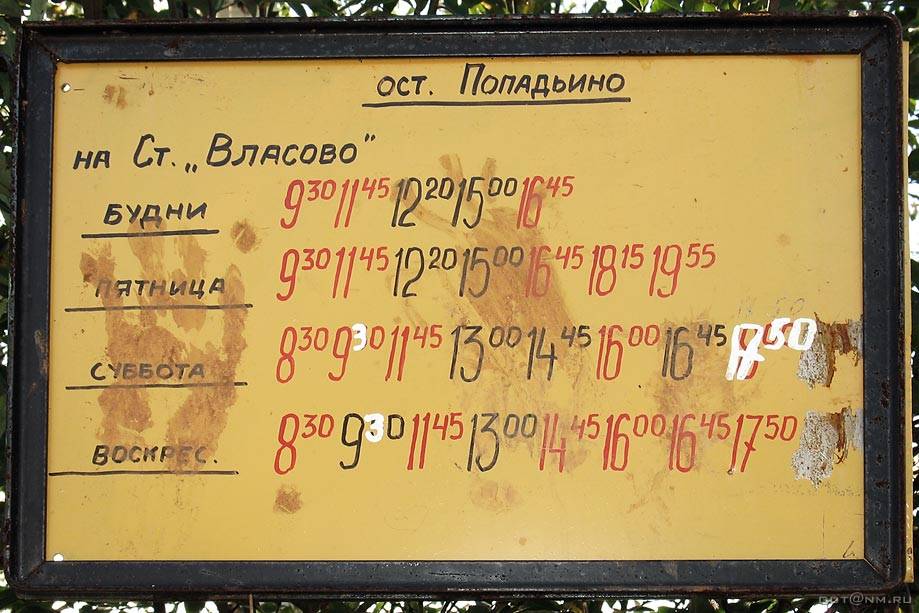 ост. Попадьино
на Ст. „Власово"
Будни 9 30 11 45 12 20 15 00 16 45
Пятница 9 30 11 45 12 20 15 00 16 45 18 15 19 55
Суббота 8 30 9 30 11 45 13 00 14 45 16 00 16 45 17 50
Воскрес. 8 30 9 30 11 45 13 00 14 45 16 00 16 45 17 50
DOT@NM.RU